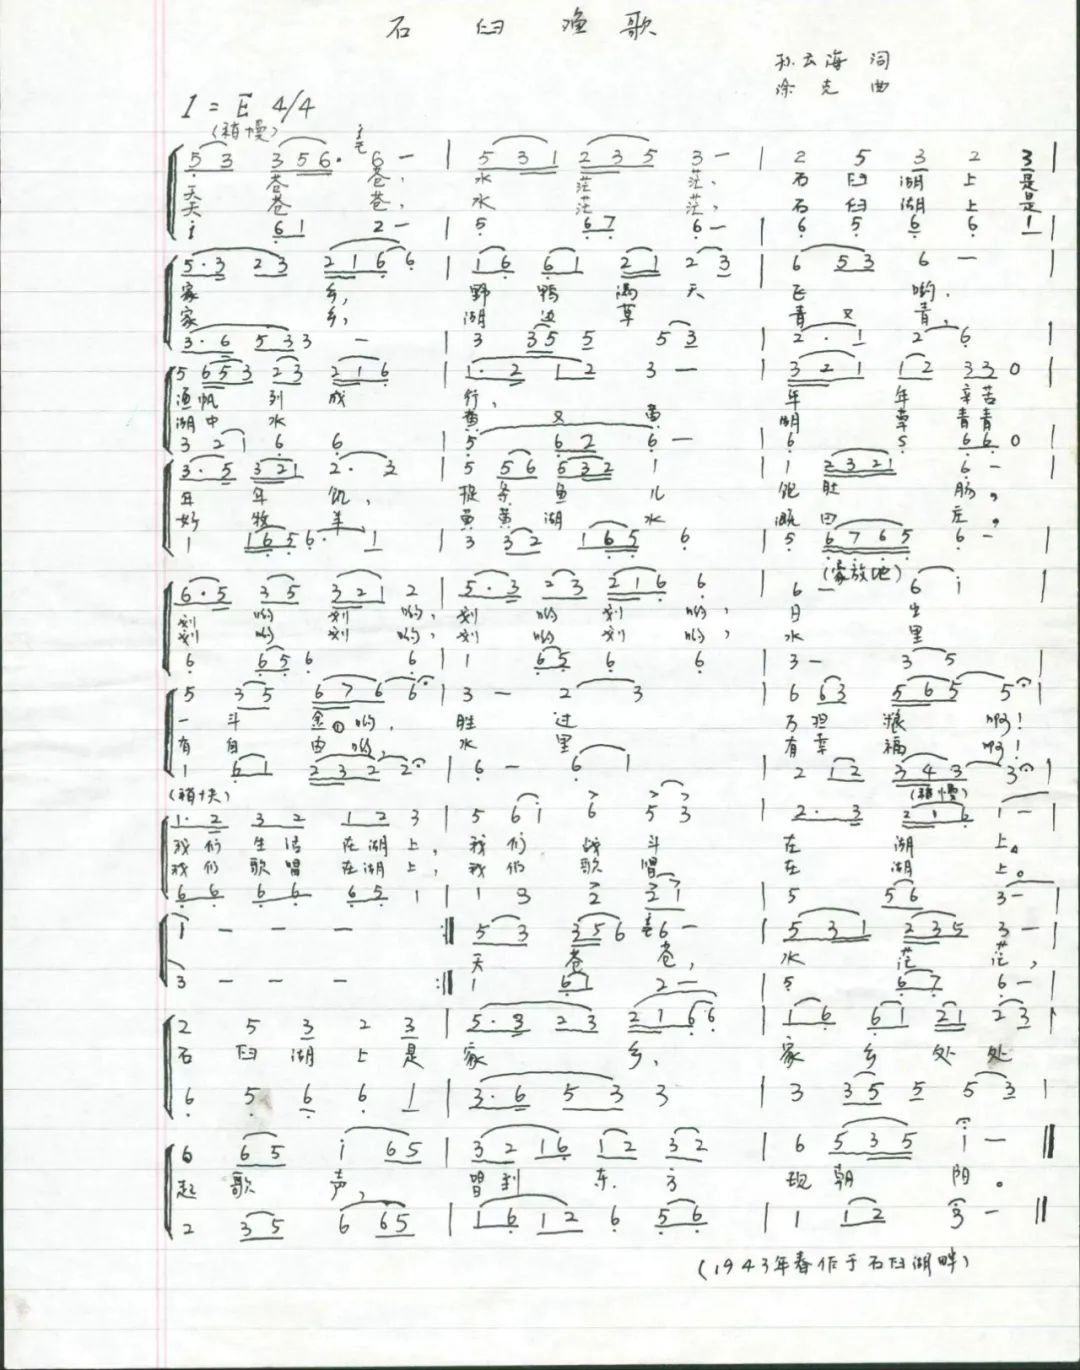 石臼渔歌
孙云海 词
涂克 曲
1 = E 4/4
(稍慢)
5 3 3 5 6· 6 — | 5 3 1 2 3 5 3 — | 2 5 3 2 3 |
天苍苍, 水茫茫, 石臼湖上是
天苍苍, 水茫茫, 石臼湖上是
i 6 1 2 — | 5 6 7 6 — | 6 5 6 6 1 |
5·3 2 3 2 1 6 6 | 1 6 6 1 2 1 2 3 | 6 5 3 6 — |
家乡, 野鸭满天飞哟.
家乡, 湖边草青又青,
3·6 5 3 3 — | 3 3 5 5 5 3 | 2· 1 2 6 |
5 6 5 3 2 3 2 1 6 | 1·2 1 2 3 — | 3 2 1 1 2 3 3 0 |
渔帆列成行, 年年辛苦
湖中水黄又黄 湖草青青
3 2 1 6 6 | 5 6 2 6 — | 6 5 6 6 0 |
3·5 3 2 1 2· 3 | 5 5 6 5 3 2 1 | 1 2 3 2 1 6 — |
年年饥, 捉条鱼儿饱肚肠,
好牧羊 黄黄湖水溉田庄,
1 1 6 5 6· 1 | 3 3 2 1 6 5 6 | 5 6 7 6 5 6 — |
(豪放地)
6·5 3 5 3 2 1 2 | 5·3 2 3 2 1 6 6 | 6 — 6 i |
划哟划哟, 划哟划哟, 日出
划哟划哟, 划哟划哟, 水里
6 6 5 6 6 | 1 6 5 6 6 | 3 — 3 5 |
5 3 5 6 7 6 6· | 3 — 2 3 | 6 6 3 5 6 5 5· |
一斗金哟, 胜过万担粮啊!
有自由哟, 水里有幸福啊!
1 6 1 2 3 2 2 | 6 — 6 1 | 2 1 2 3 4 3 3 |
(稍快) (稍慢)
1·2 3 2 1 2 3 | 5 6 i 6 5 3 | 2·3 2 1 6 1 — |
我们生活在湖上, 我们战斗在湖上。
我们歌唱在湖上, 我们歌唱在湖上。
6 6 6 6 6 5 1 | 1 3 2 2 1 | 5 5 6 3 — |
1 — — — :‖ 5 3 3 5 6 6 — | 5 3 1 2 3 5 3 — |
天苍苍, 水茫茫,
3 — — — :‖ 1 6 1 2 — | 5 6 7 6 — |
2 5 3 2 3 | 5·3 2 3 2 1 6 6 | 1 6 6 1 2 1 2 3 |
石臼湖上是家乡, 家乡处处
6 5 6 6 1 | 3·6 5 3 3 | 3 3 5 5 5 3 |
6 6 5 i 6 5 | 3 2 1 6 1 2 3 2 | 6 5 3 5 i — ‖
起歌声, 唱到东方现朝阳。
2 3 5 6 6 5 | 1 6 1 2 6 5 6 | 1 1 2 3 — ‖
(1943年春作于石臼湖畔)